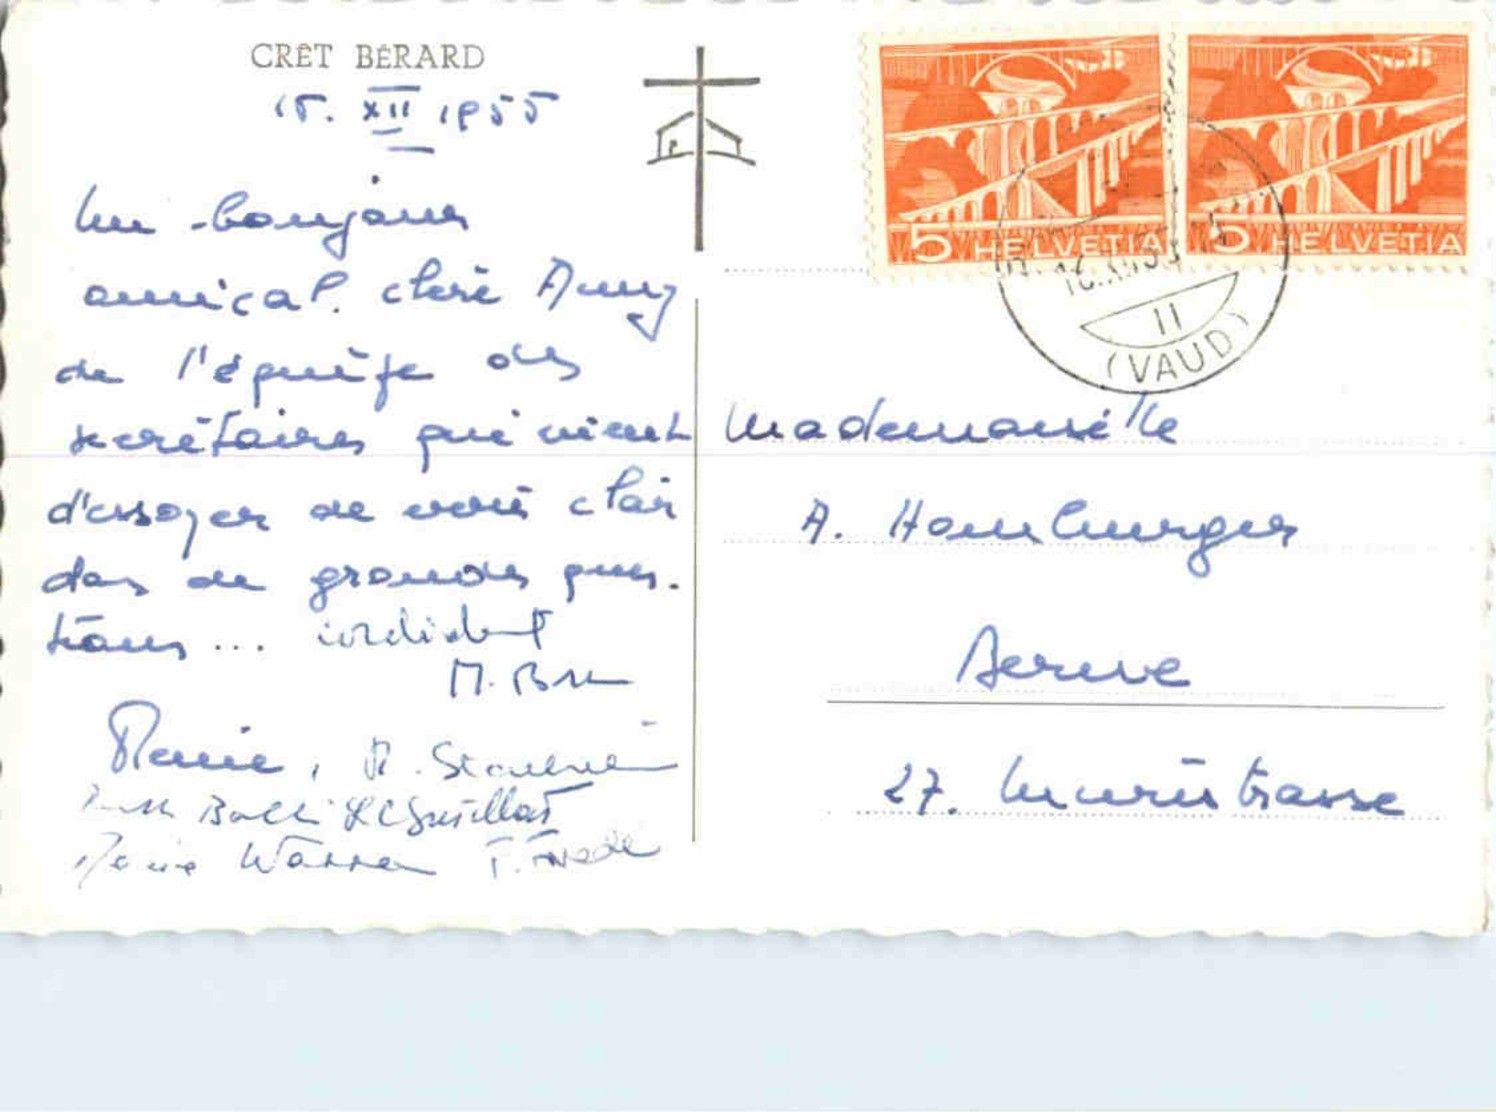 CRÊT BÉRARD
15. XII 1955
Un bonjour
amical, chère Anny
de l'équipe des
secrétaires qui vient
d'essayer de voir clair
dans de grandes ques-
tions... cordialement
M.
Renée, R.
Ruth Bolli
Marie
5 HELVETIA
5 HELVETIA
II
(VAUD)
Mademoiselle
A. Homburger
Berne
27. Muristrasse